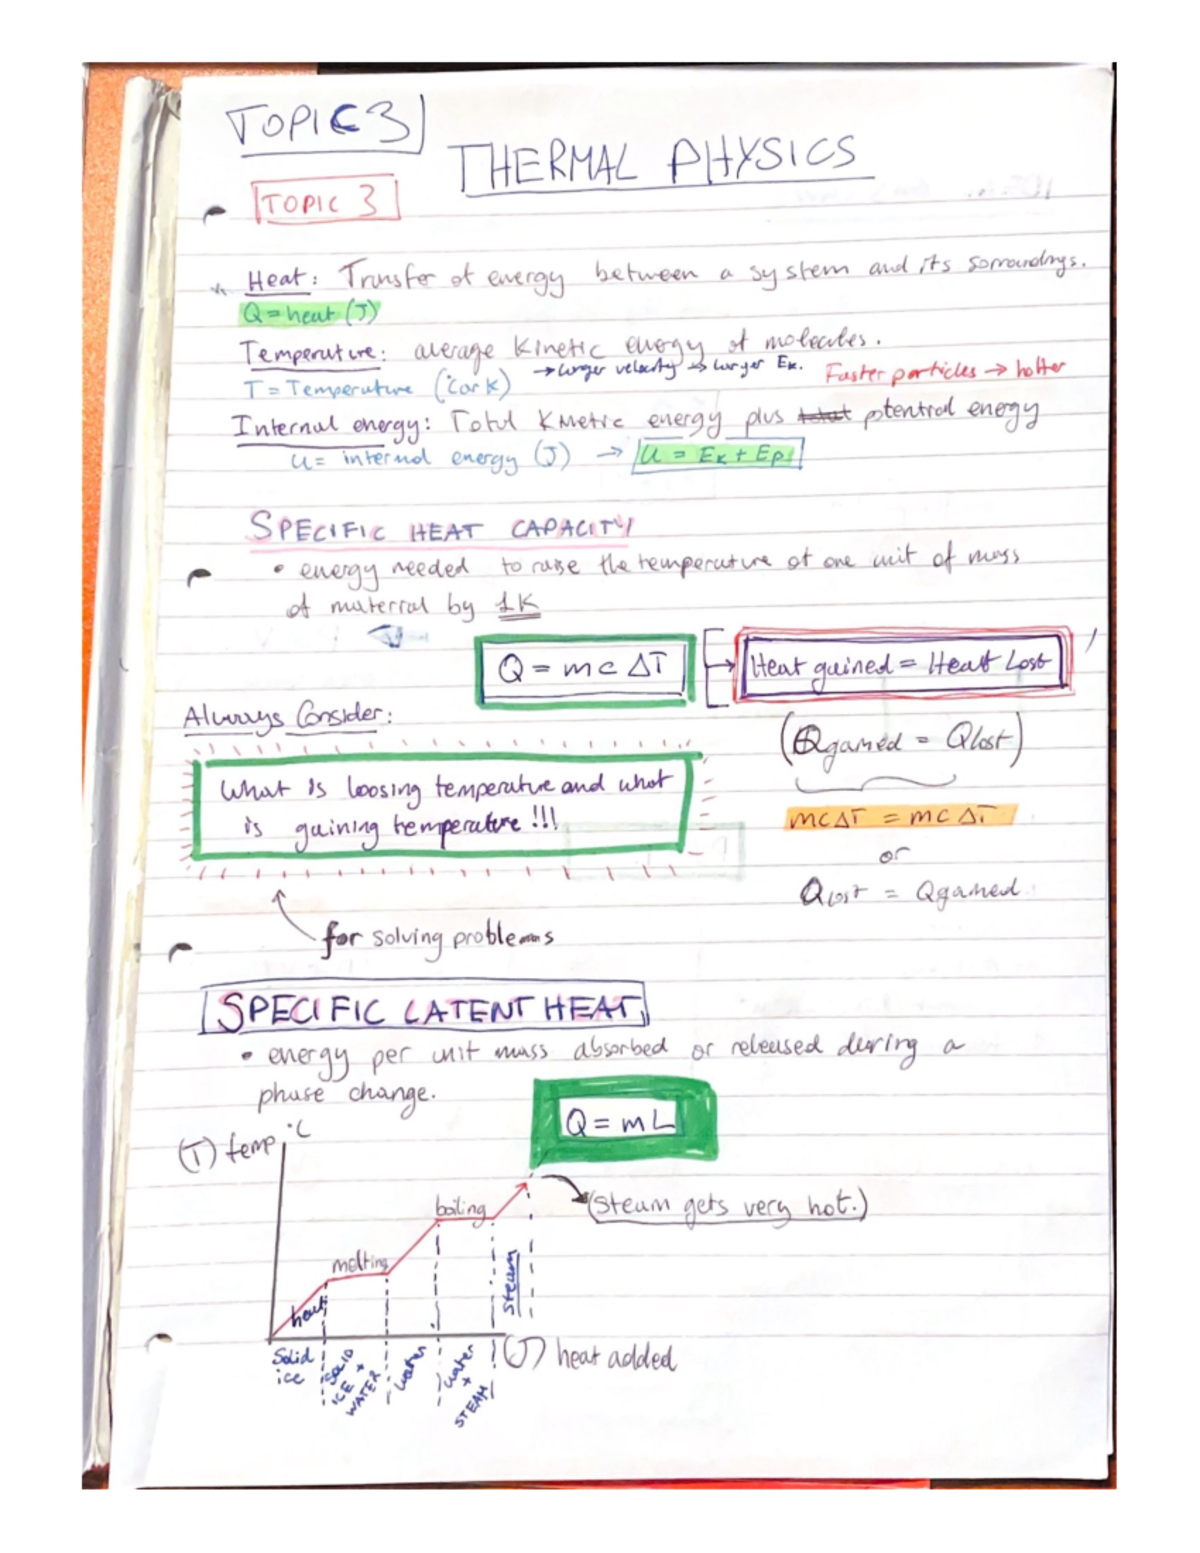 TOPIC 3
THERMAL PHYSICS
TOPIC 3
* Heat: Transfer of energy between a system and its sorroundngs.
Q = heat (J)
Temperature: average kinetic energy of molecules.
→ larger velocity → larger Ek. Faster particles → hotter
T = Temperature (°C or K)
Internal energy: Total kinetic energy plus total potential energy
U = internal energy (J) → U = Ek + Ep
SPECIFIC HEAT CAPACITY
• energy needed to raise the temperature of one unit of mass
of material by 1K
Q = mc ΔT → Heat gained = Heat Lost
Always Consider:
(Qgained = Qlost)
What is loosing temperature and what
is gaining temperature!!!
mcΔT = mcΔT
or
Qlost = Qgained
for solving problems
SPECIFIC LATENT HEAT
• energy per unit mass absorbed or released during a
phase change.
Q = mL
(T) temp °C
boiling
(steam gets very hot.)
melting
heat
steam
Solid
ice
SOLID
ICE +
WATER
water
water
+
STEAM
(J) heat added